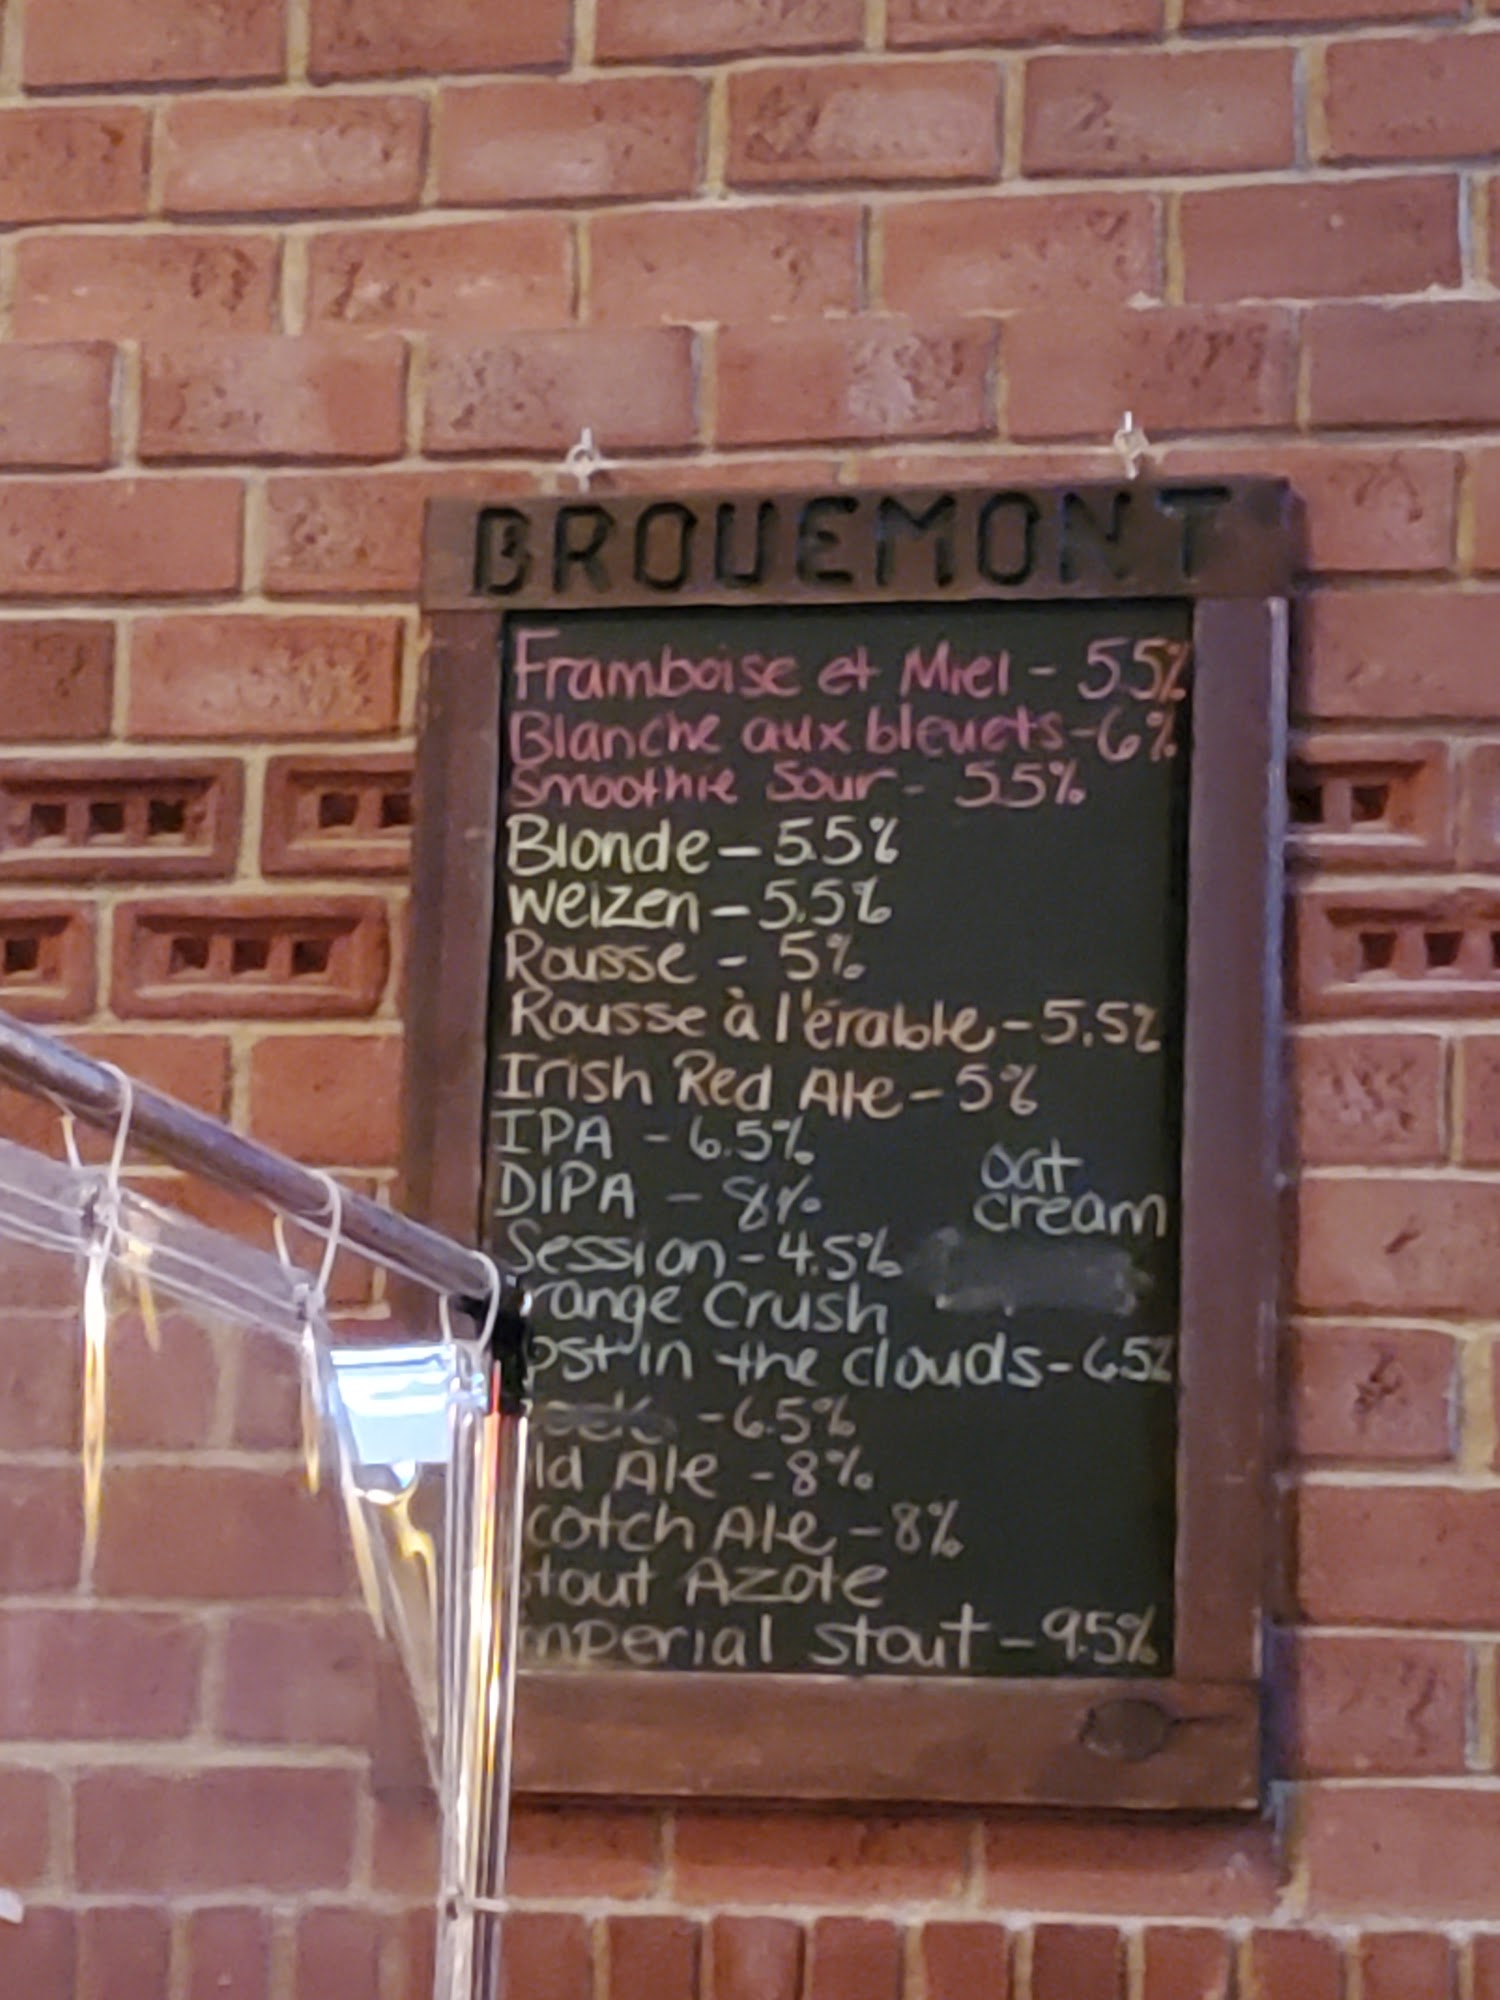 BROUEMONT
Framboise et Miel - 5.5%
Blanche aux bleuets - 6%
Smoothie Sour - 5.5%
Blonde - 5.5%
Weizen - 5.5%
Rousse - 5%
Rousse à l'érable - 5.5%
Irish Red Ale - 5%
IPA - 6.5%
DIPA - 8%
oat
cream
Session - 4.5%
range Crush
ost in the clouds - 6.5%
- 6.5%
ld Ale - 8%
cotch Ale - 8%
tout Azote
mperial stout - 9.5%